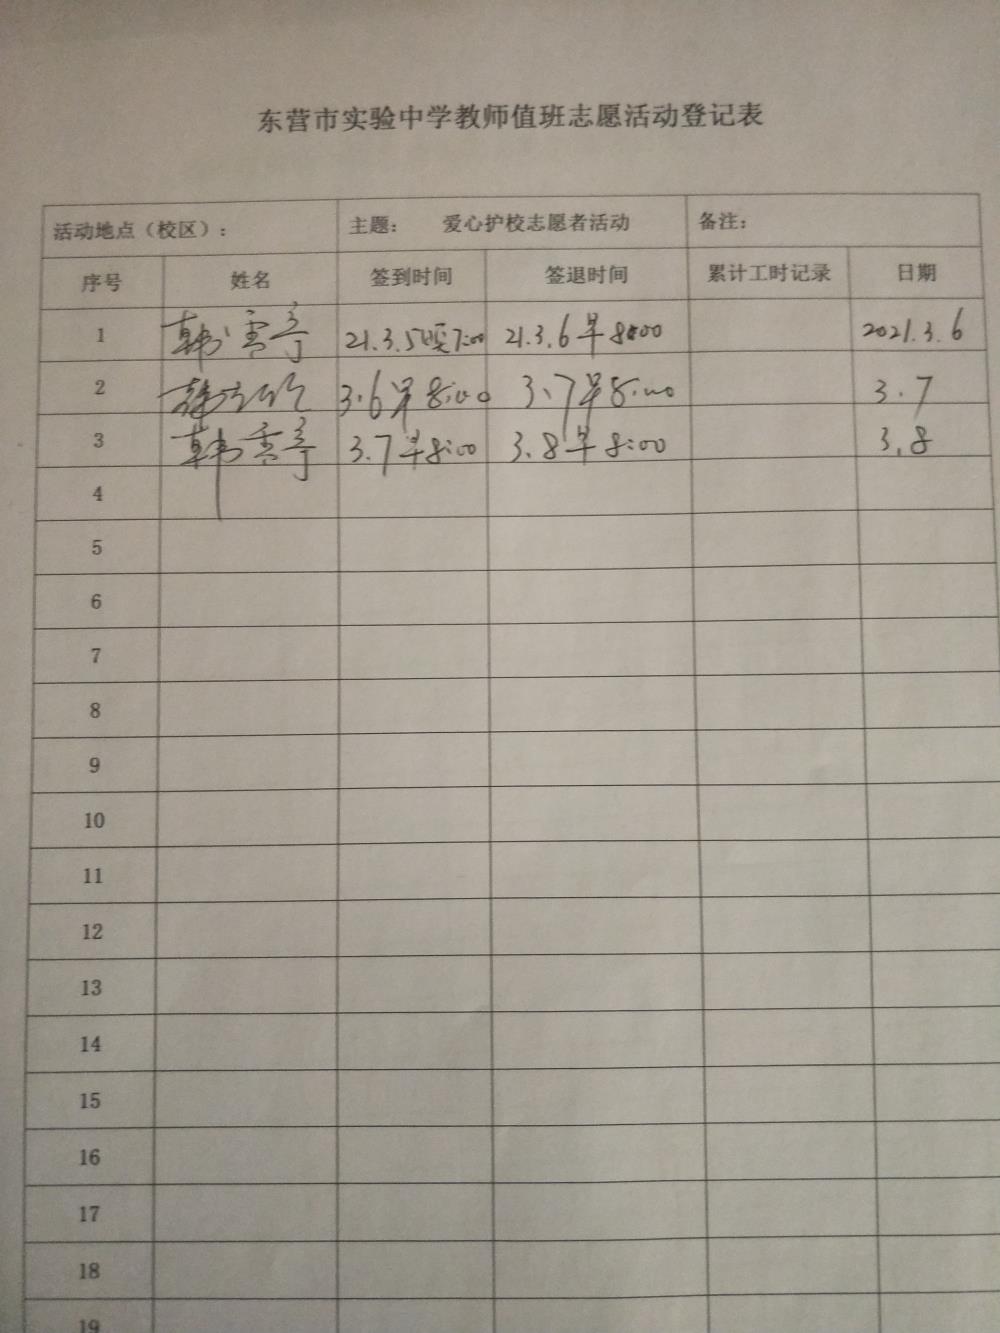 东营市实验中学教师值班志愿活动登记表
活动地点（校区）： 主题： 爱心护校志愿者活动 备注：
序号 姓名 签到时间 签退时间 累计工时记录 日期
1 韩雪亭 21.3.5晚7:00 21.3.6早8:00 2021.3.6
2 3.6早8:00 3.7早8:00 3.7
3 韩雪亭 3.7早8:00 3.8早8:00 3.8
4
5
6
7
8
9
10
11
12
13
14
15
16
17
18
19